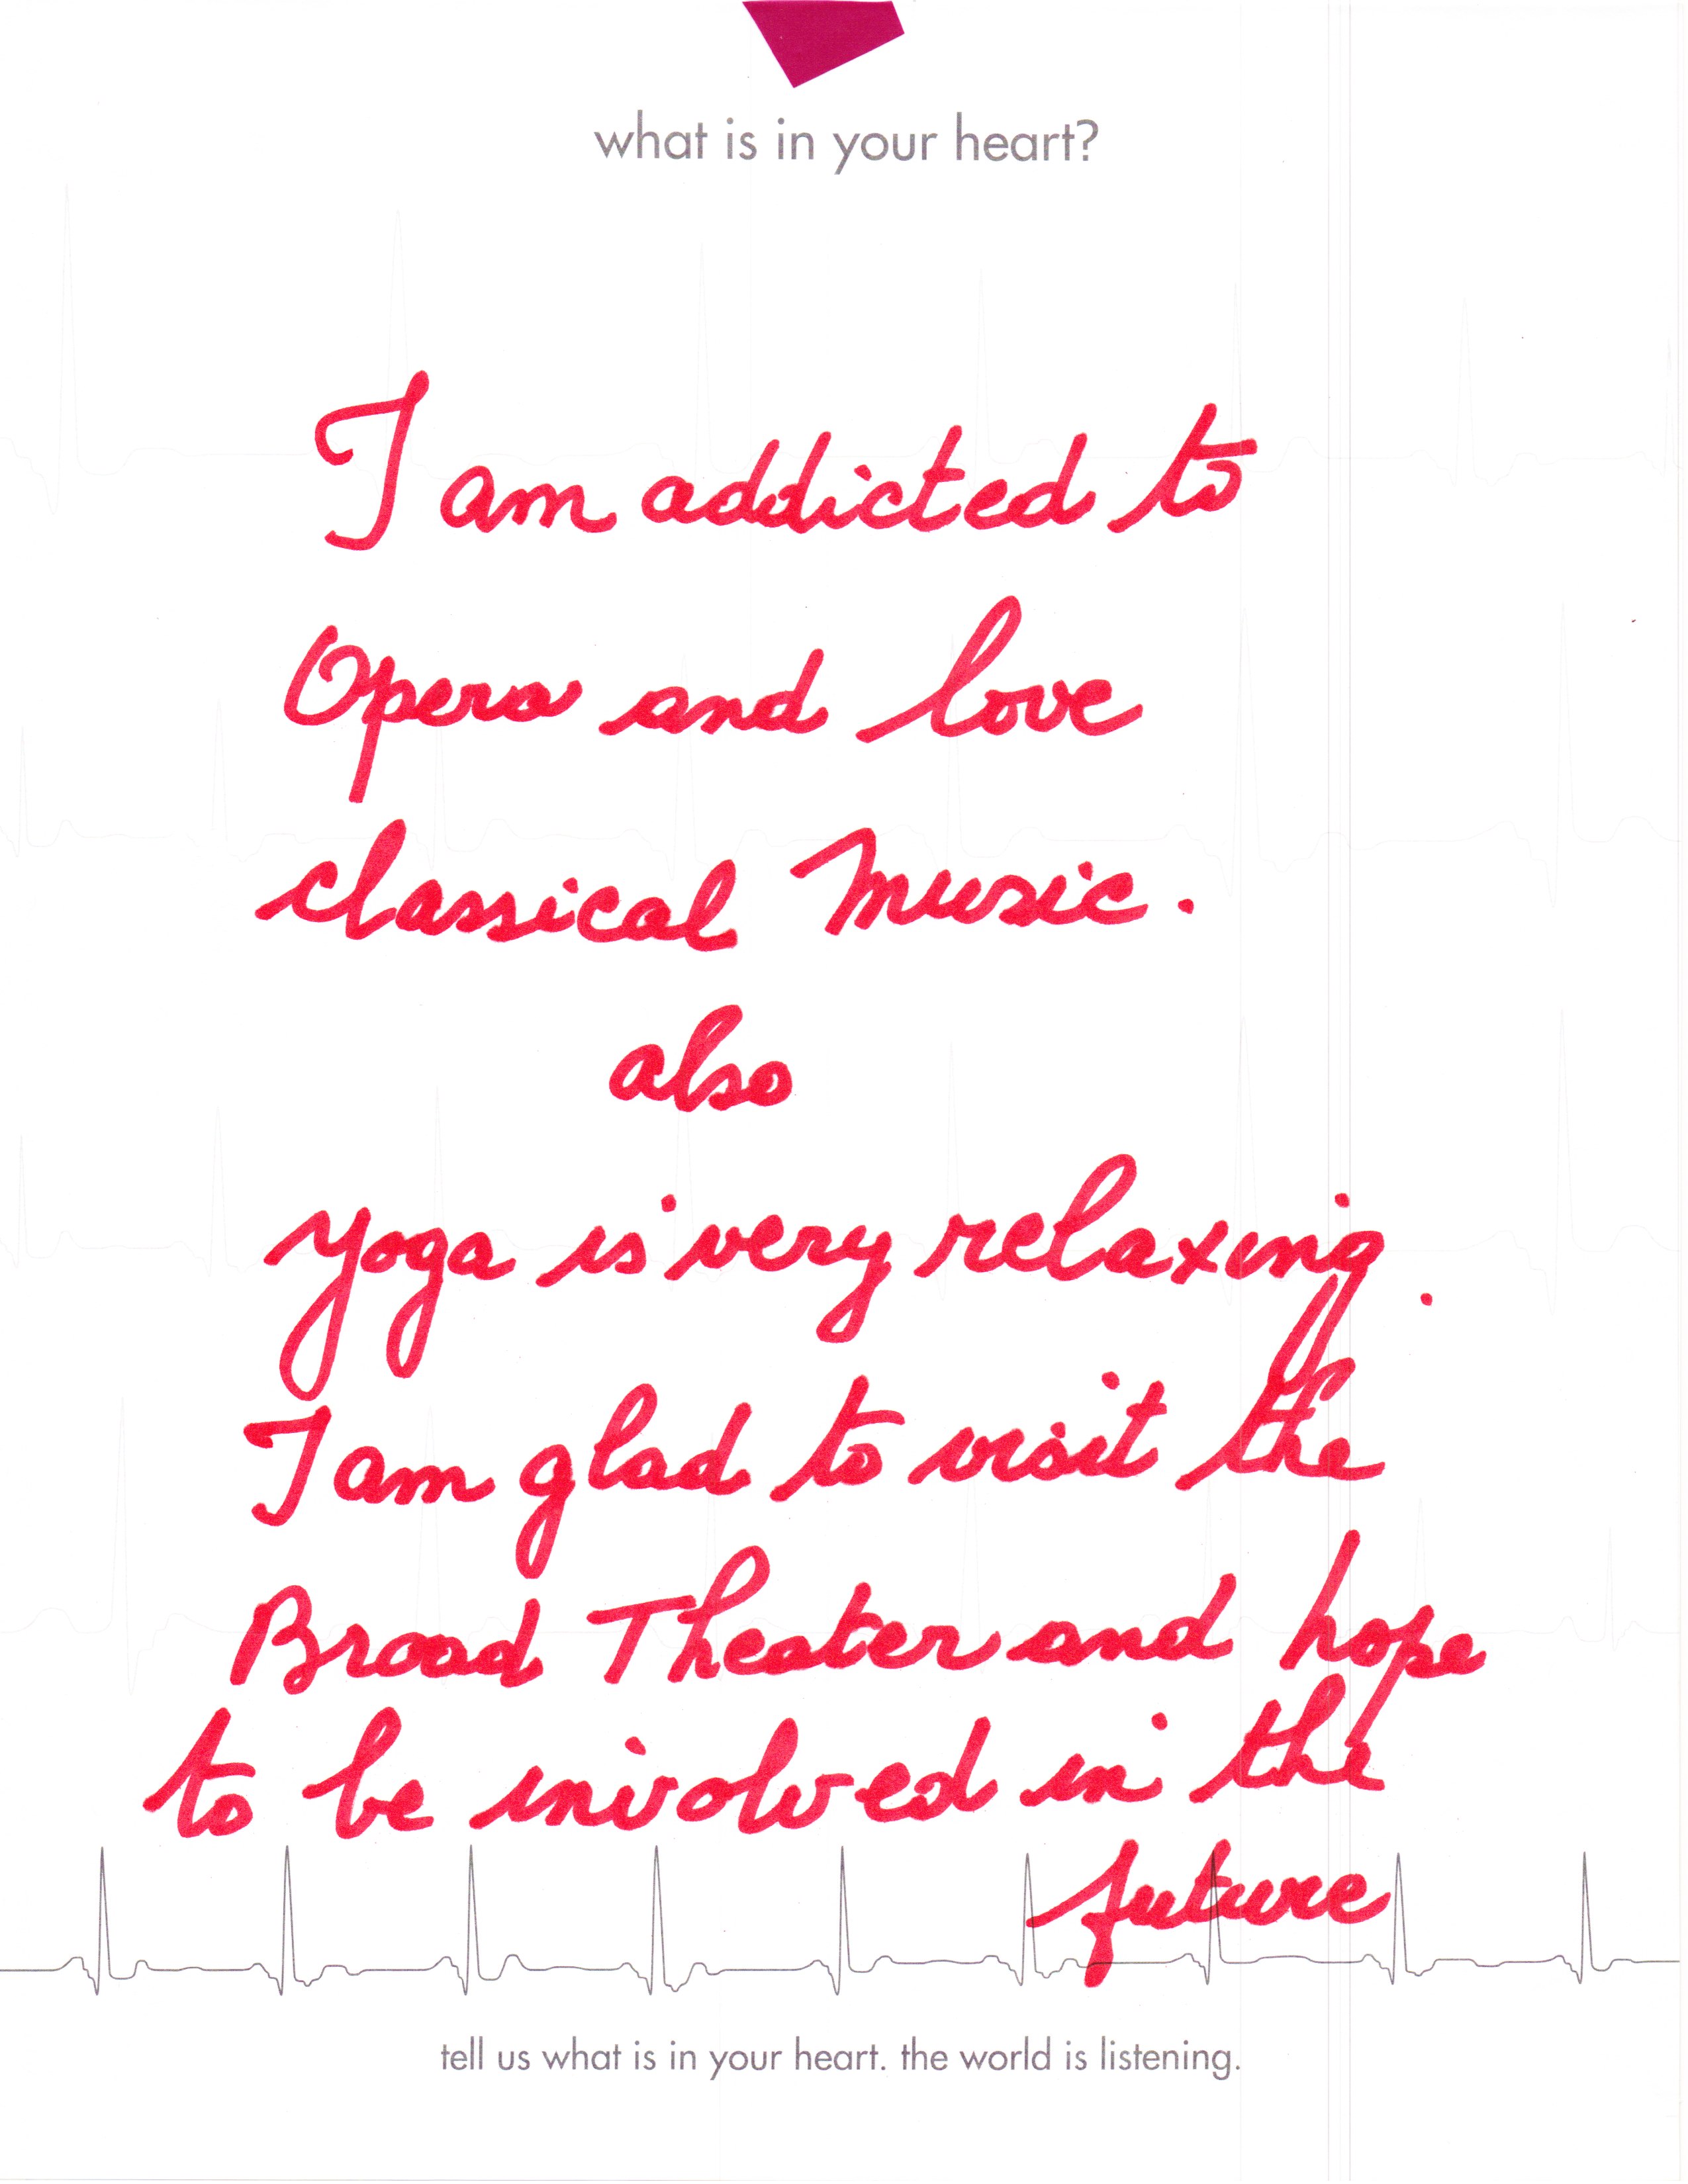 what is in your heart?
I am addicted to
Opera and love
classical Music.
also
yoga is very relaxing.
I am glad to visit the
Broad Theater and hope
to be involved in the
future
tell us what is in your heart. the world is listening.